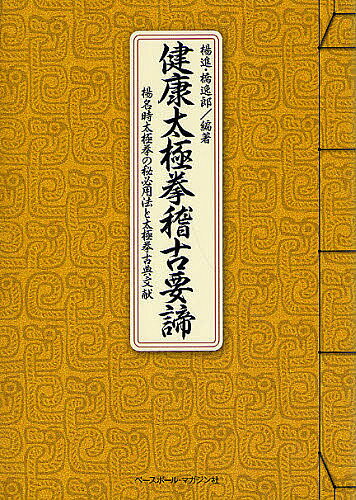 楊進・橋逸郎/編著
健康太極拳稽古要諦
楊名時太極拳の秘必用法と太極拳古典文献
ベースボール・マガジン社